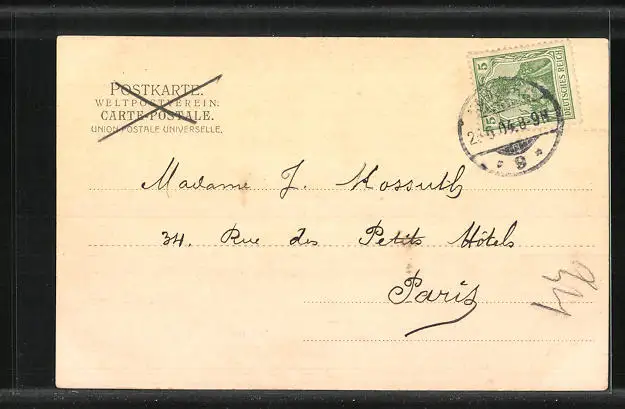 POSTKARTE.
WELTPOSTVEREIN.
CARTE-POSTALE.
UNION POSTALE UNIVERSELLE.
5
DEUTSCHES REICH
5
8-9N
9
Madame J. Kossuth
34. Rue des Petits Hôtels
Paris